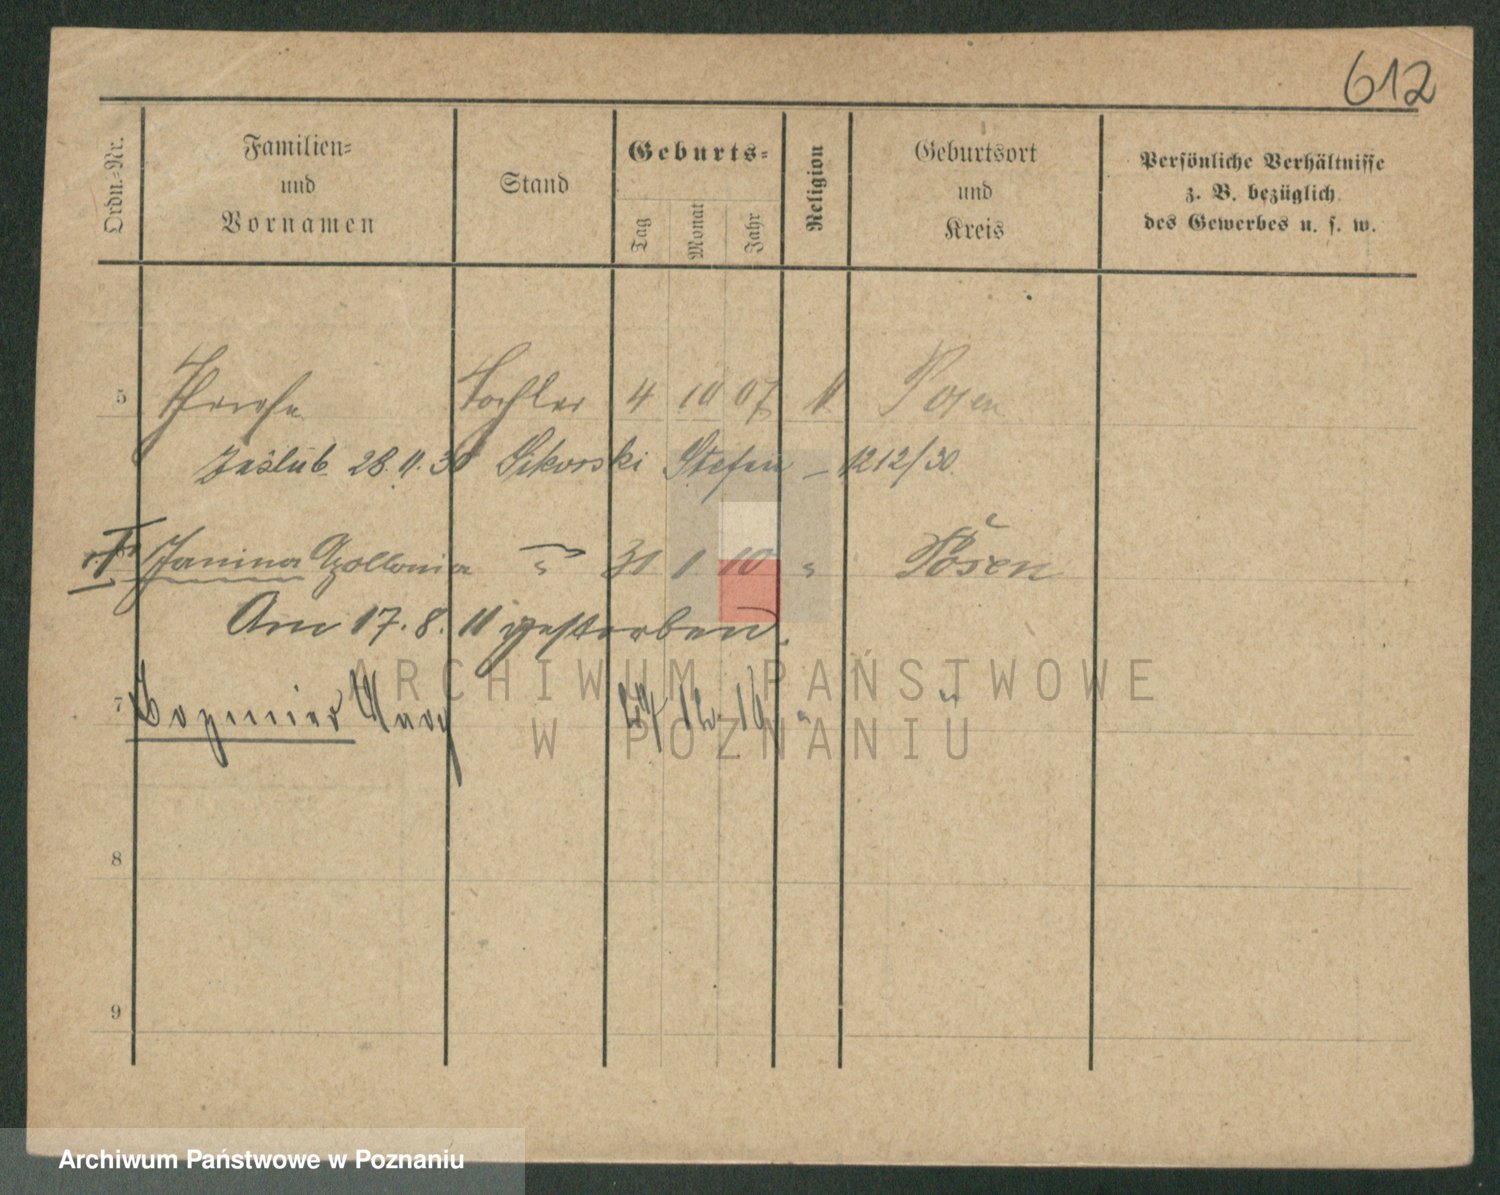 612
Ordn.-Nr.
Familien-
und
Vornamen
Stand
Geburts-
Tag
Monat
Jahr
Religion
Geburtsort
und
Kreis
Persönliche Verhältnisse
z. B. bezüglich
des Gewerbes u. s. w.
5 Tochter 4 10 07 Posen
zaślub. 28.11.30 Sikorski Stefan – 1212/30.
† Janina Apollonia " 31 1 10 " Posen
Am 17.8.11 gestorben.
7 Kazimier 12 16 " "
8
9
ARCHIWUM PAŃSTWOWE
W POZNANIU
Archiwum Państwowe w Poznaniu